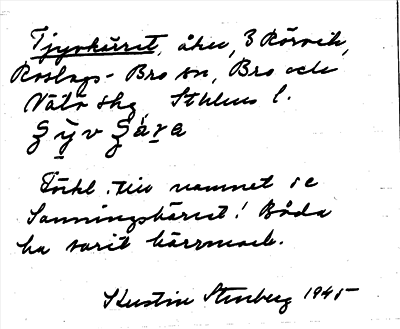 Tjuvkärret, åker, 3 Rörvik,
Roslags-Bro sn, Bro och
Vätö skg, Sthlms l.
Förkl. till namnet se
Sanningskäret! Båda
ha varit kärrmark.
Kerstin Stenberg 1945